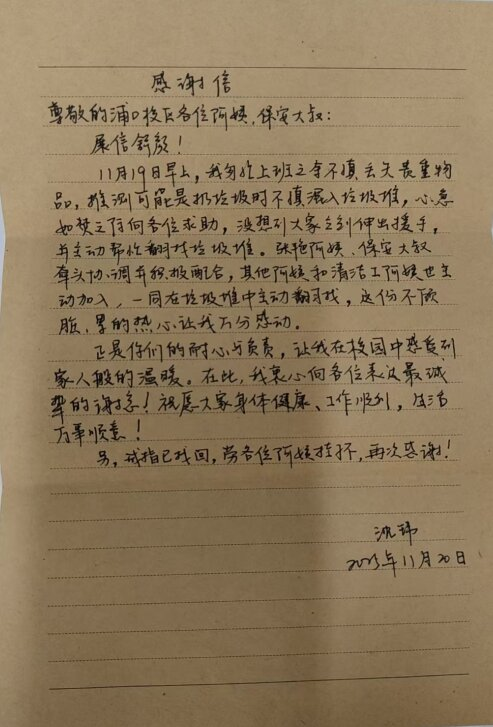 感谢信
尊敬的浦口校区各位阿姨、保安大叔：
展信舒颜！
11月19日早上，我匆忙上班之余不慎丢失贵重物
品，推测可能是扔垃圾时不慎混入垃圾堆，心急
如焚之际向各位求助，没想到大家立刻伸出援手，
并主动帮忙翻找垃圾堆。张艳阿姨、保安大叔
牵头协调并积极配合，其他阿姨和清洁工阿姨也主
动加入，一同在垃圾堆中主动翻找，这份不顾
脏、累的热心让我万分感动。
正是你们的耐心与负责，让我在校园中感受到
家人般的温暖。在此，我衷心向各位表达最诚
挚的谢意！祝愿大家身体健康、工作顺利，生活
万事顺意！
另，戒指已找回，劳各位阿姨挂怀，再次感谢！
沈玮
2025年11月20日